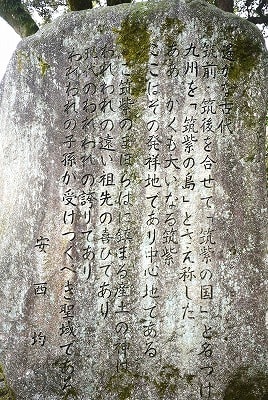 遥かな古代
筑前・筑後を合せて「筑紫の国」と名づけ
九州を「筑紫の島」とさえ称した
ああ かくも大いなる筑紫
ここはその発祥地であり中心地である
ここ筑紫のまほらばに鎮まる産土の神は
われわれの遠い祖先の喜びであり
現代のわれわれの誇りであり
われわれの子孫が受けつぐべき聖域である
安西均